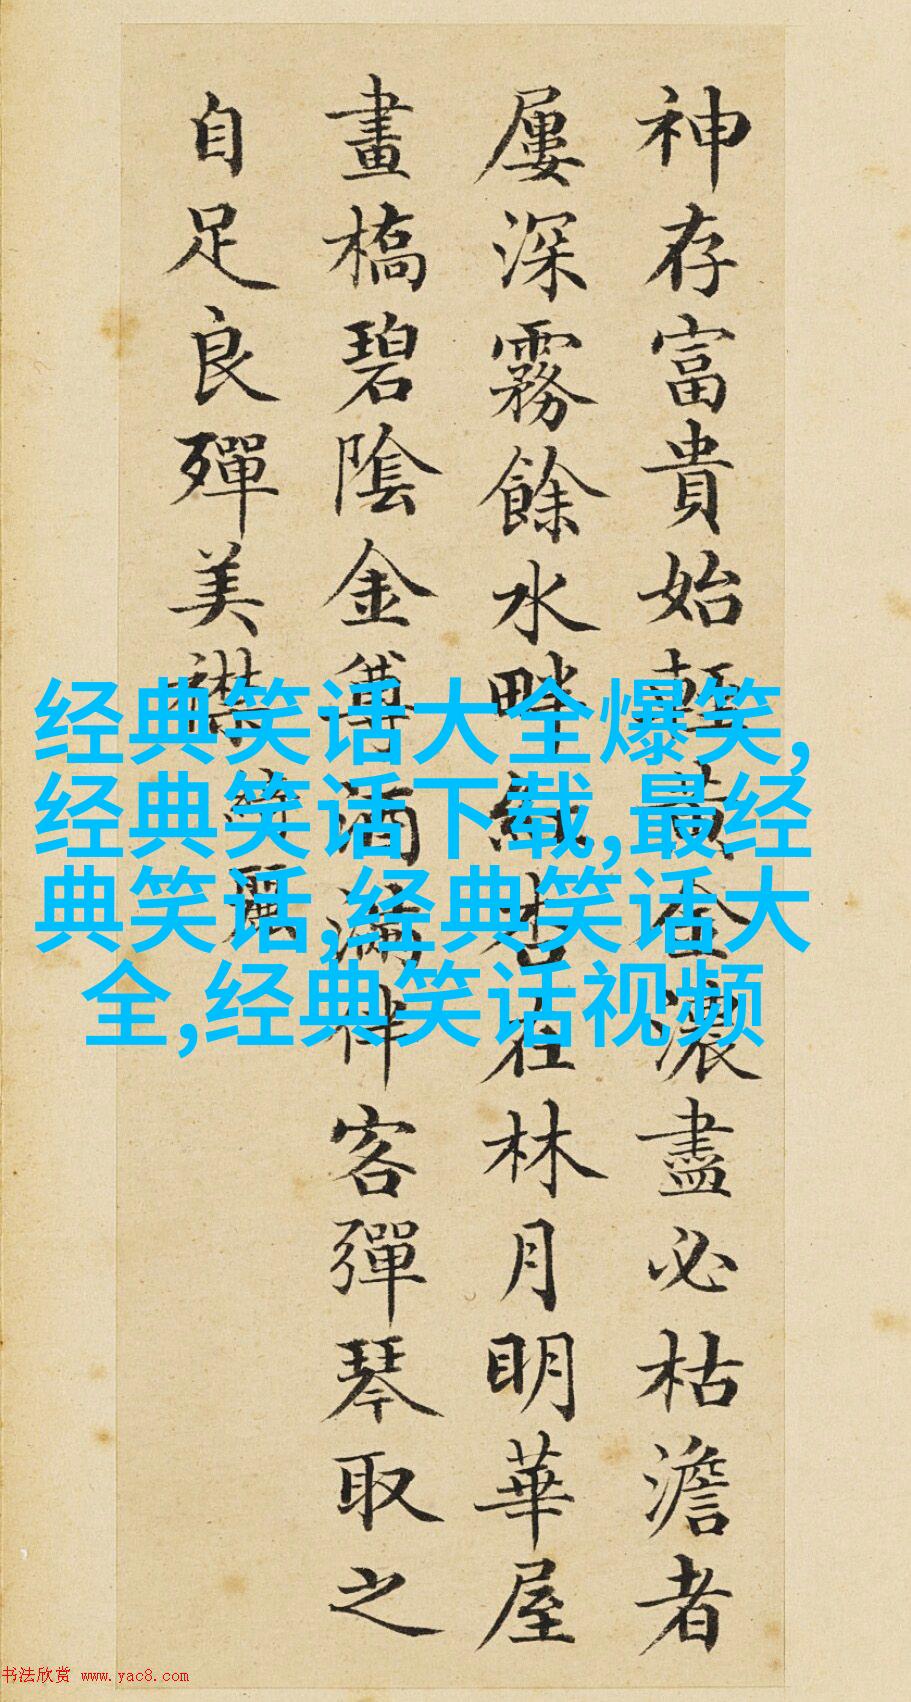 神存富貴始輕黃金濃盡必枯澹者
屢深霧餘水畔紅杏在林月明華屋
畫橋碧陰金尊酒滿伴客彈琴取之
自足良殫美襟
经典笑话大全爆笑,
经典笑话下载,最经
典笑话,经典笑话大
全,经典笑话视频
书法欣赏 www.yac8.com